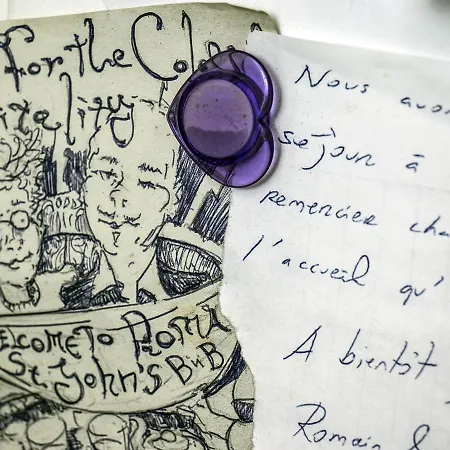 For the
WELCOME TO ROMA
St. John's BnB
Nous avo
séjour à
remercier cha
l'accueil qu'
A bientôt
Romain &